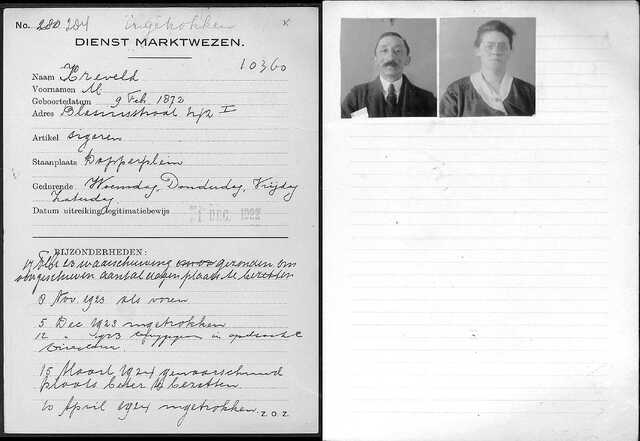 No. 280 284 ingetrokken x
DIENST MARKTWEZEN.
10360
Naam Kreveld
Voornamen M
Geboortedatum 9 Feb. 1872
Adres I
Artikel sigaren
Staanplaats Dapperplein
Gedurende Woensdag, Donderdag, Vrijdag
Zaterdag
Datum uitreiking legitimatiebewijs DEC. 1922
BIJZONDERHEDEN:
17 Febr 23 waarschuwing gezonden om
voorgeschreven aantal dagen plaats te bezetten
8 Nov 1923 als voren
5 Dec 1923 ingetrokken
12 " 1923 in opdracht
Directeur.
15 Maart 1924 gewaarschuwd
plaats beter te bezetten.
10 April 1924 ingetrokken. z.o.z.